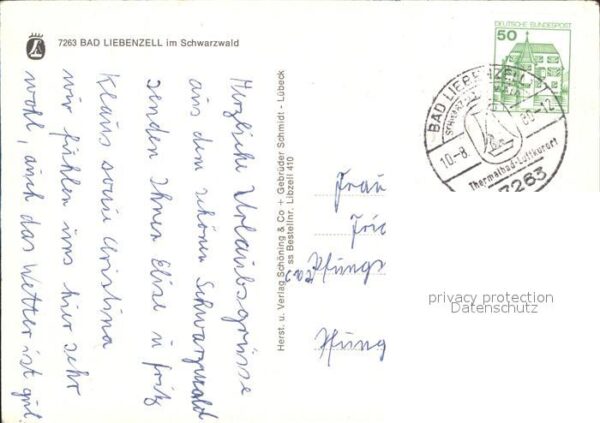 7263 BAD LIEBENZELL im Schwarzwald
Herzliche Urlaubsgrüsse
aus dem schönen Schwarzwald
senden Ihnen Elise u Fritz
Klaus sowie Christina
wir fühlen uns hier sehr
wohl, auch das Wetter ist gut.
Herst. u. Verlag Schöning & Co + Gebrüder Schmidt - Lübeck
ss Bestellnr. Libzell 410
DEUTSCHE BUNDESPOST
50
BAD LIEBENZELL
SCHWARZWALD
10.-8. 80.-12
Thermalbad-Luftkurort
7263
Frau
Pfungs
Pfung
privacy protection
Datenschutz